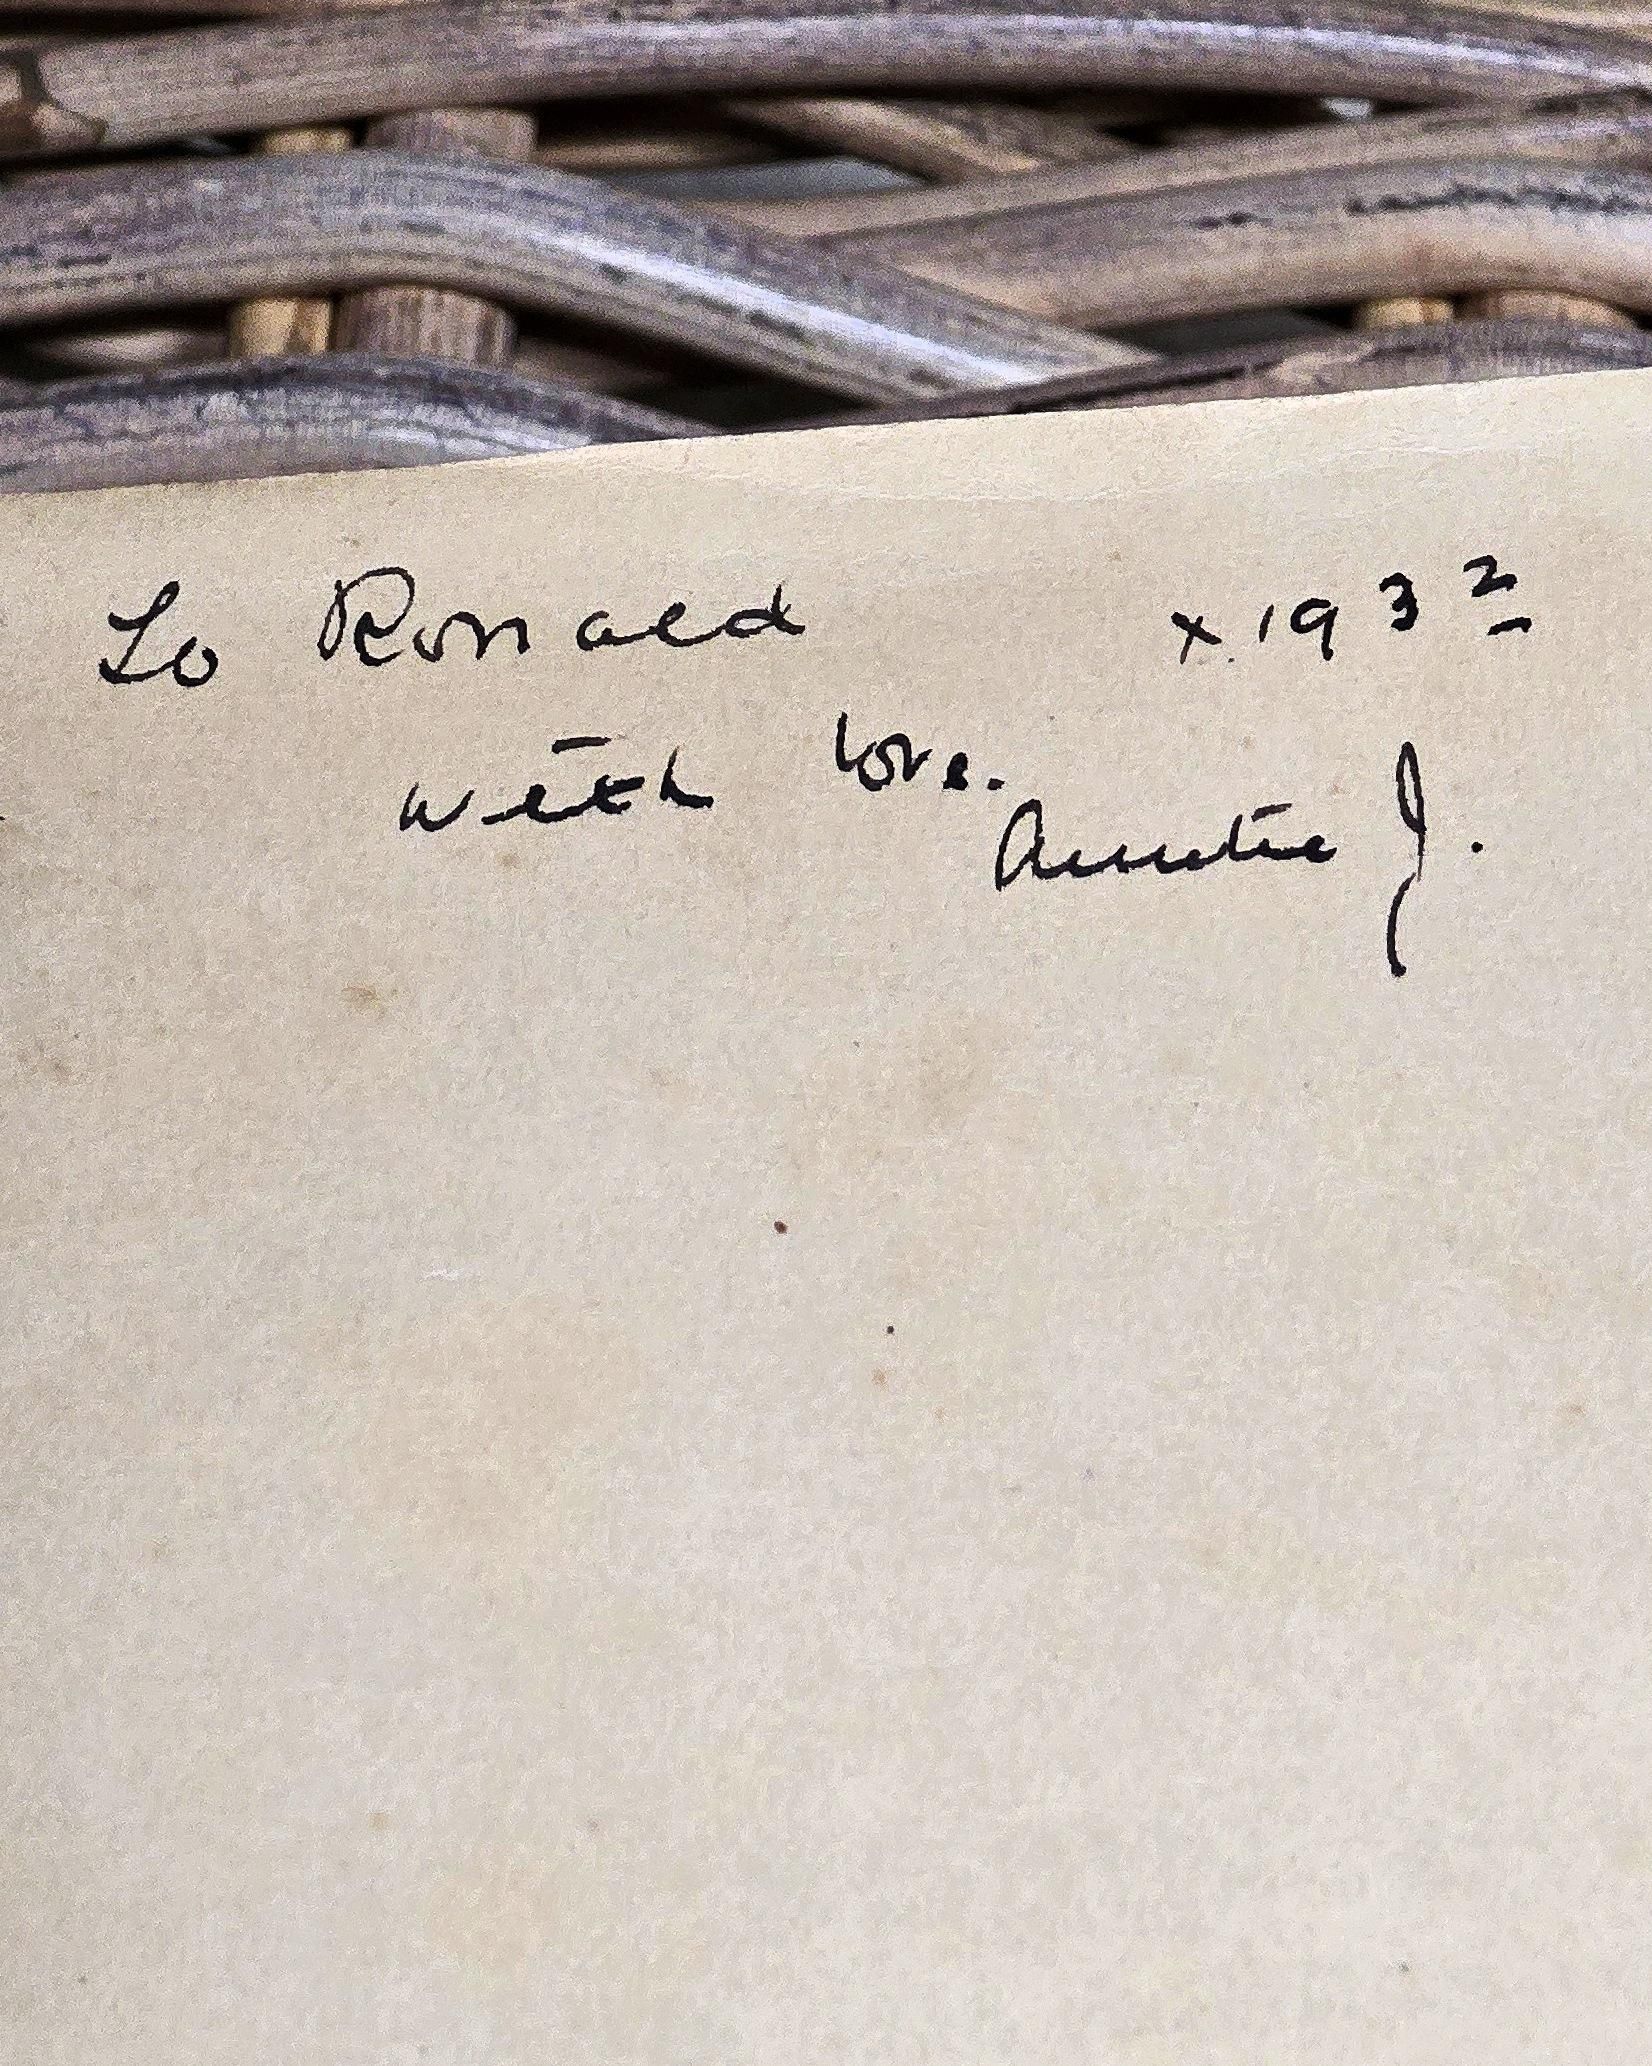 To Ronald x. 1932
with love.
Auntie J.